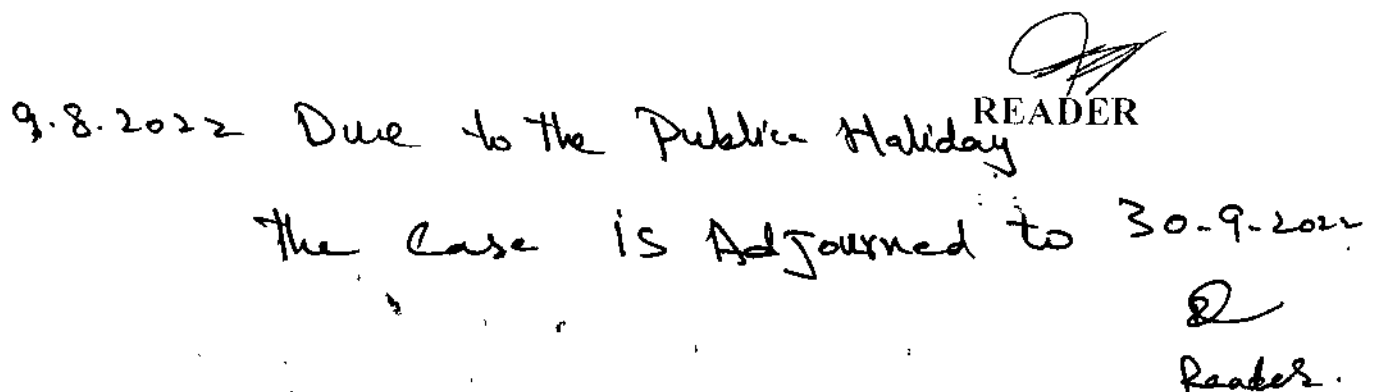 READER
9.8.2022 Due to the Public Holiday
the Case is Adjourned to 30-9-2022
Reader.